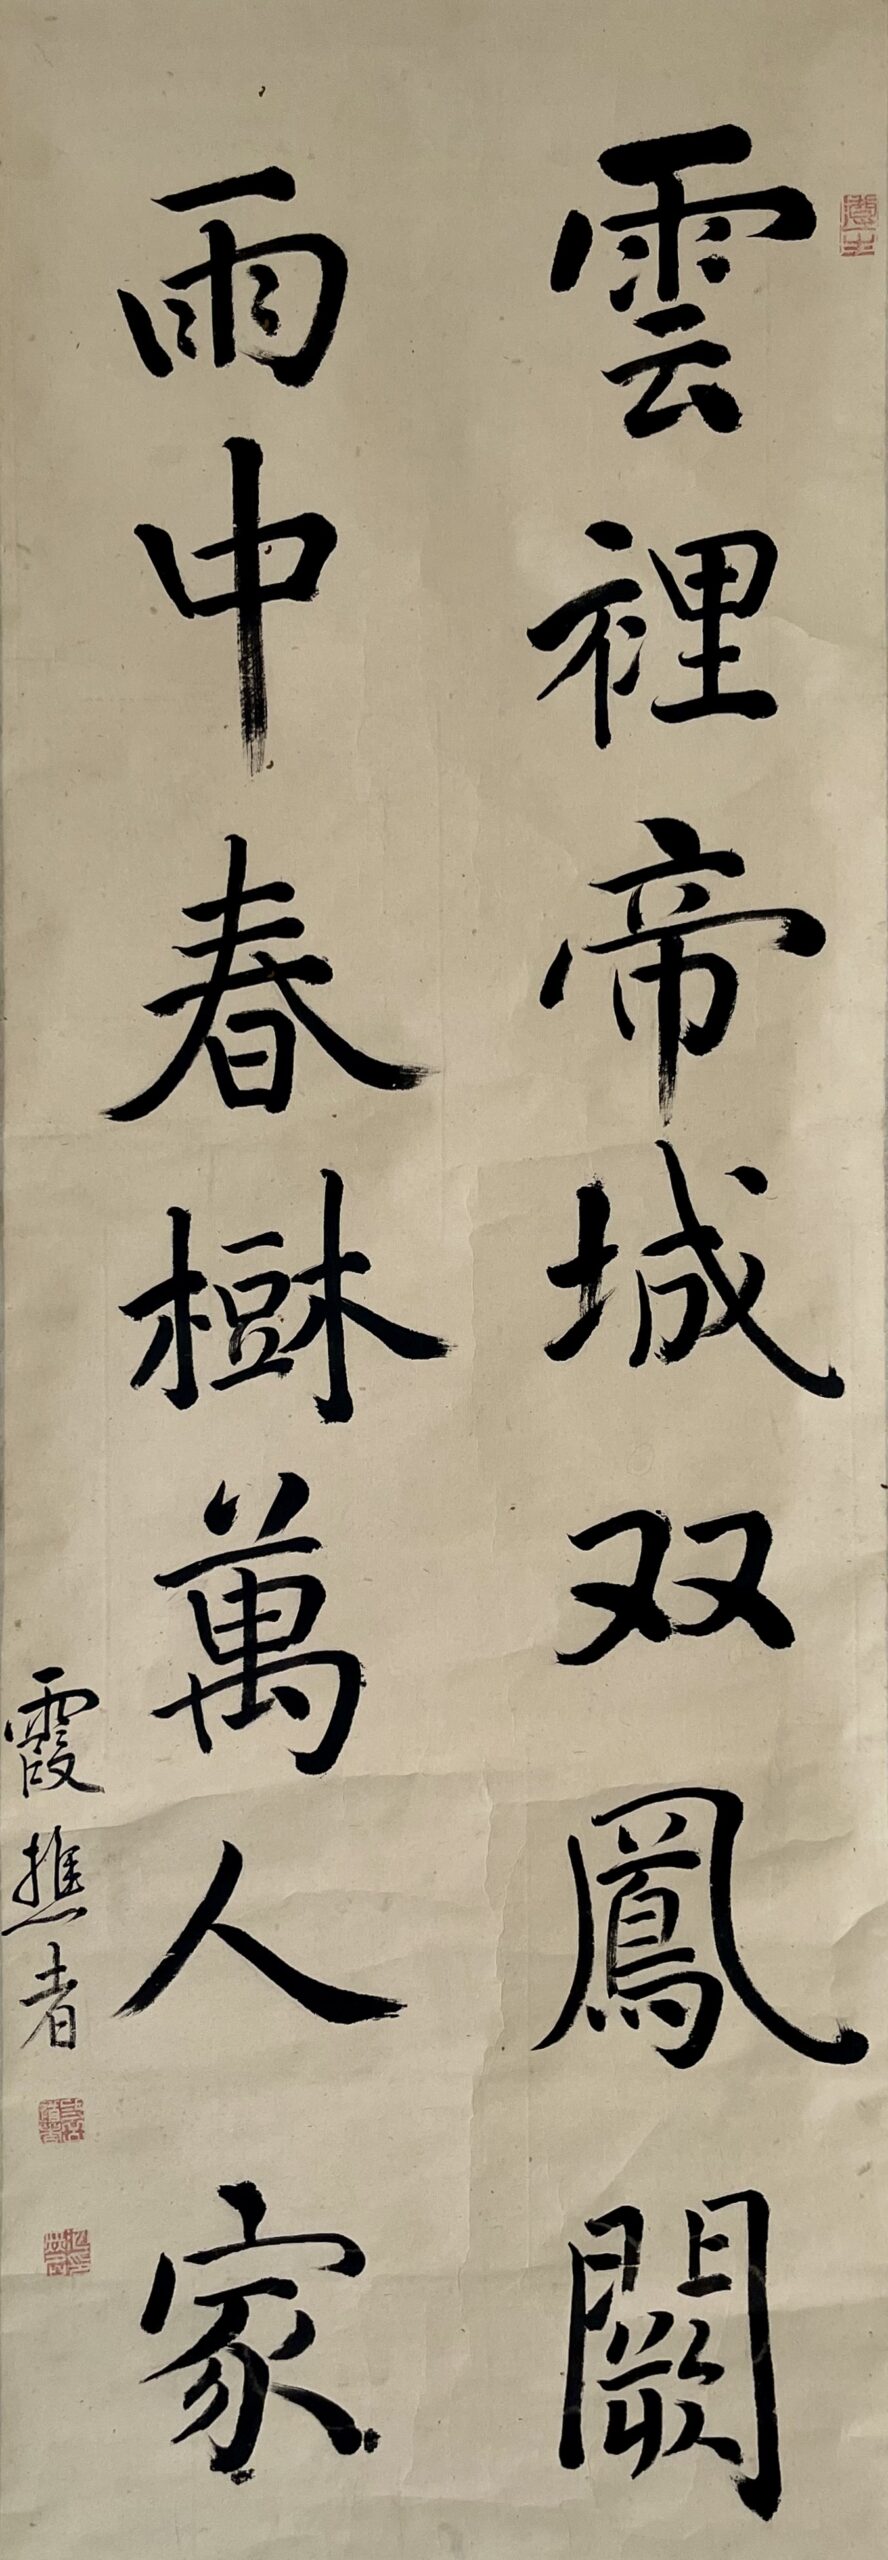 雲裡帝城双鳳闕
雨中春樹萬人家
霞樵者